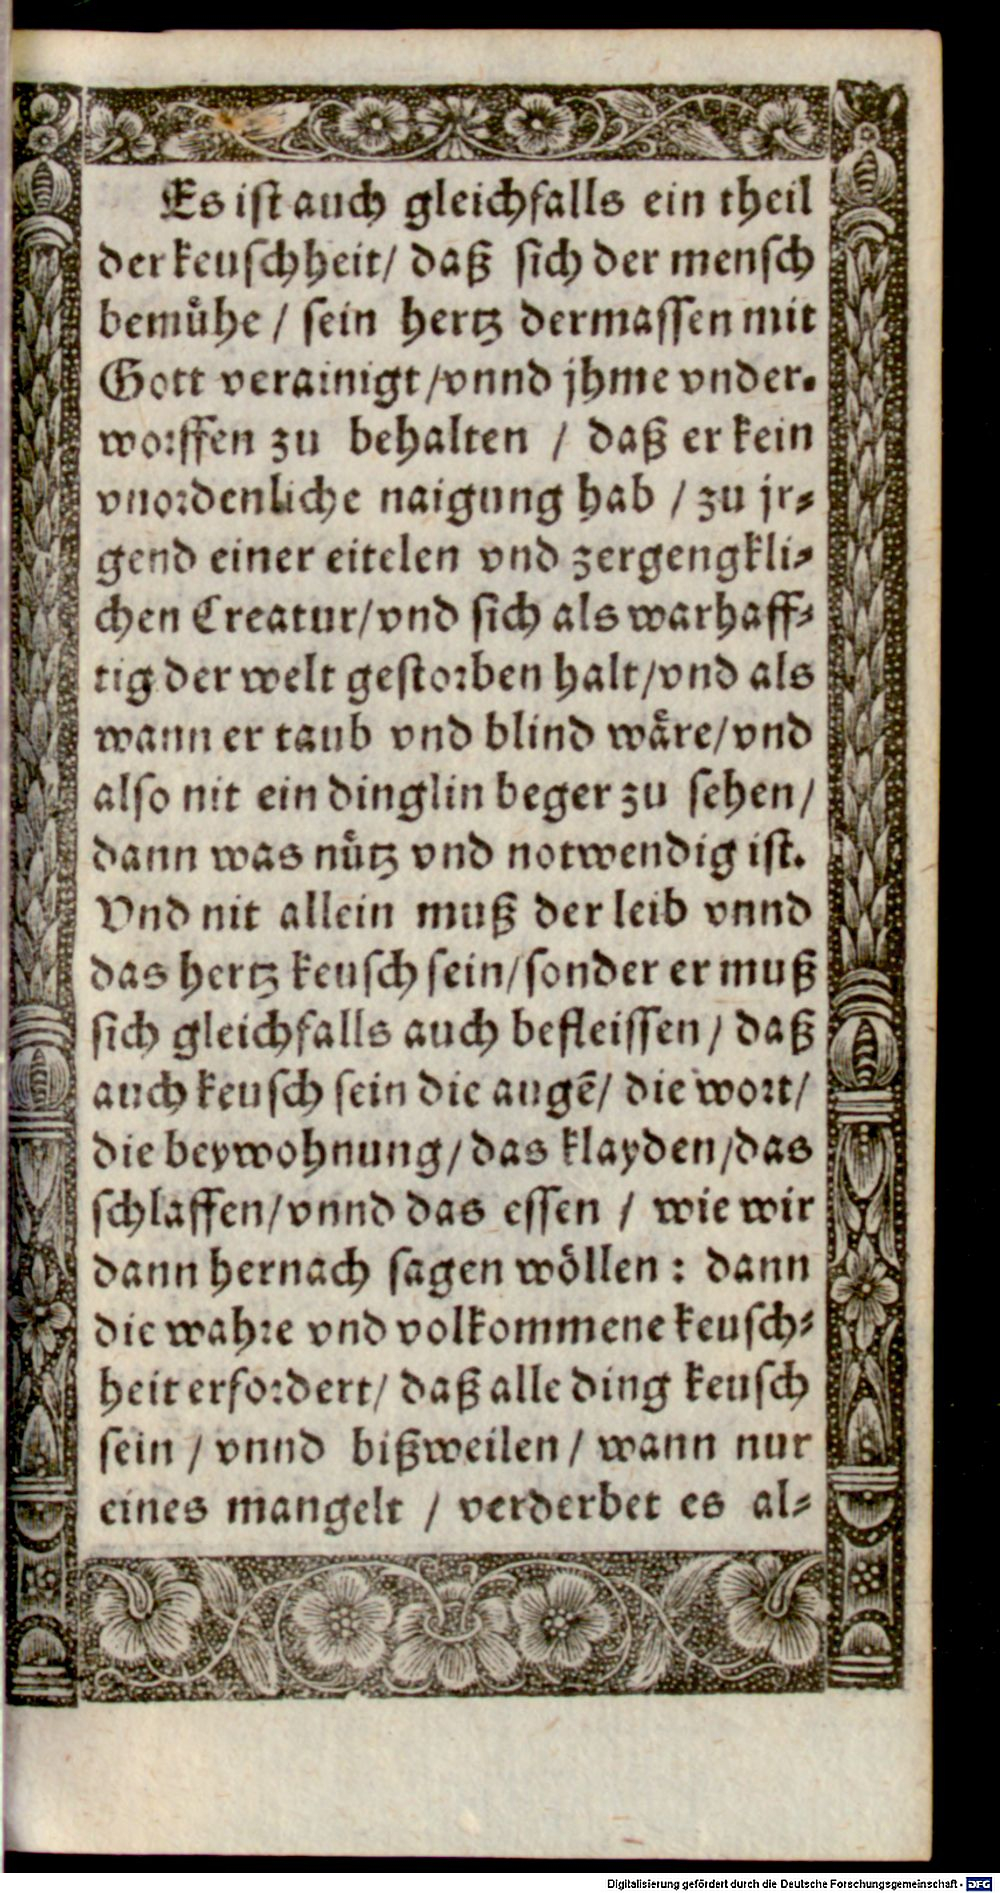 Es ist auch gleichfalls ein theil
der keuschheit/ daß sich der mensch
bemühe / sein hertz dermassen mit
Gott verainigt /vnnd jhme vnder-
worffen zu behalten / daß er kein
vnordenliche naigung hab / zu jr-
gend einer eitelen vnd zergengkli-
chen Creatur/vnd sich als warhaff-
tig der welt gestorben halt/vnd als
wann er taub vnd blind wäre/vnd
also nit ein dinglin beger zu sehen/
dann was nütz vnd notwendig ist.
Vnd nit allein muß der leib vnnd
das hertz keusch sein/sonder er muß
sich gleichfalls auch befleissen/ daß
auch keusch sein die augẽ/ die wort/
die beywohnung/das klayden/das
schlaffen/vnnd das essen / wie wir
dann hernach sagen wöllen: dann
die wahre vnd volkommene keusch-
heit erfordert/ daß alle ding keusch
sein / vnnd bißweilen/ wann nur
eines mangelt / verderbet es al-
Digitalisierung gefördert durch die Deutsche Forschungsgemeinschaft - DFG